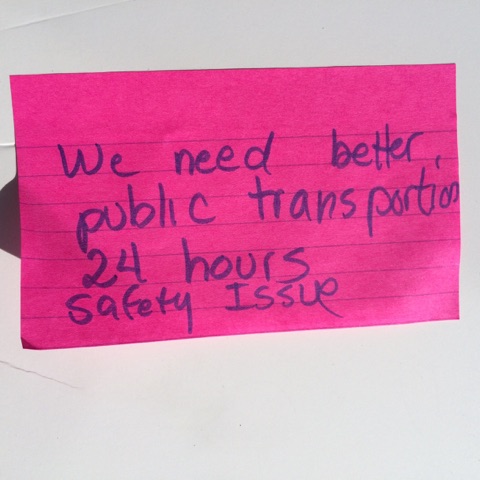 We need better
public transportion
24 hours
safety Issue